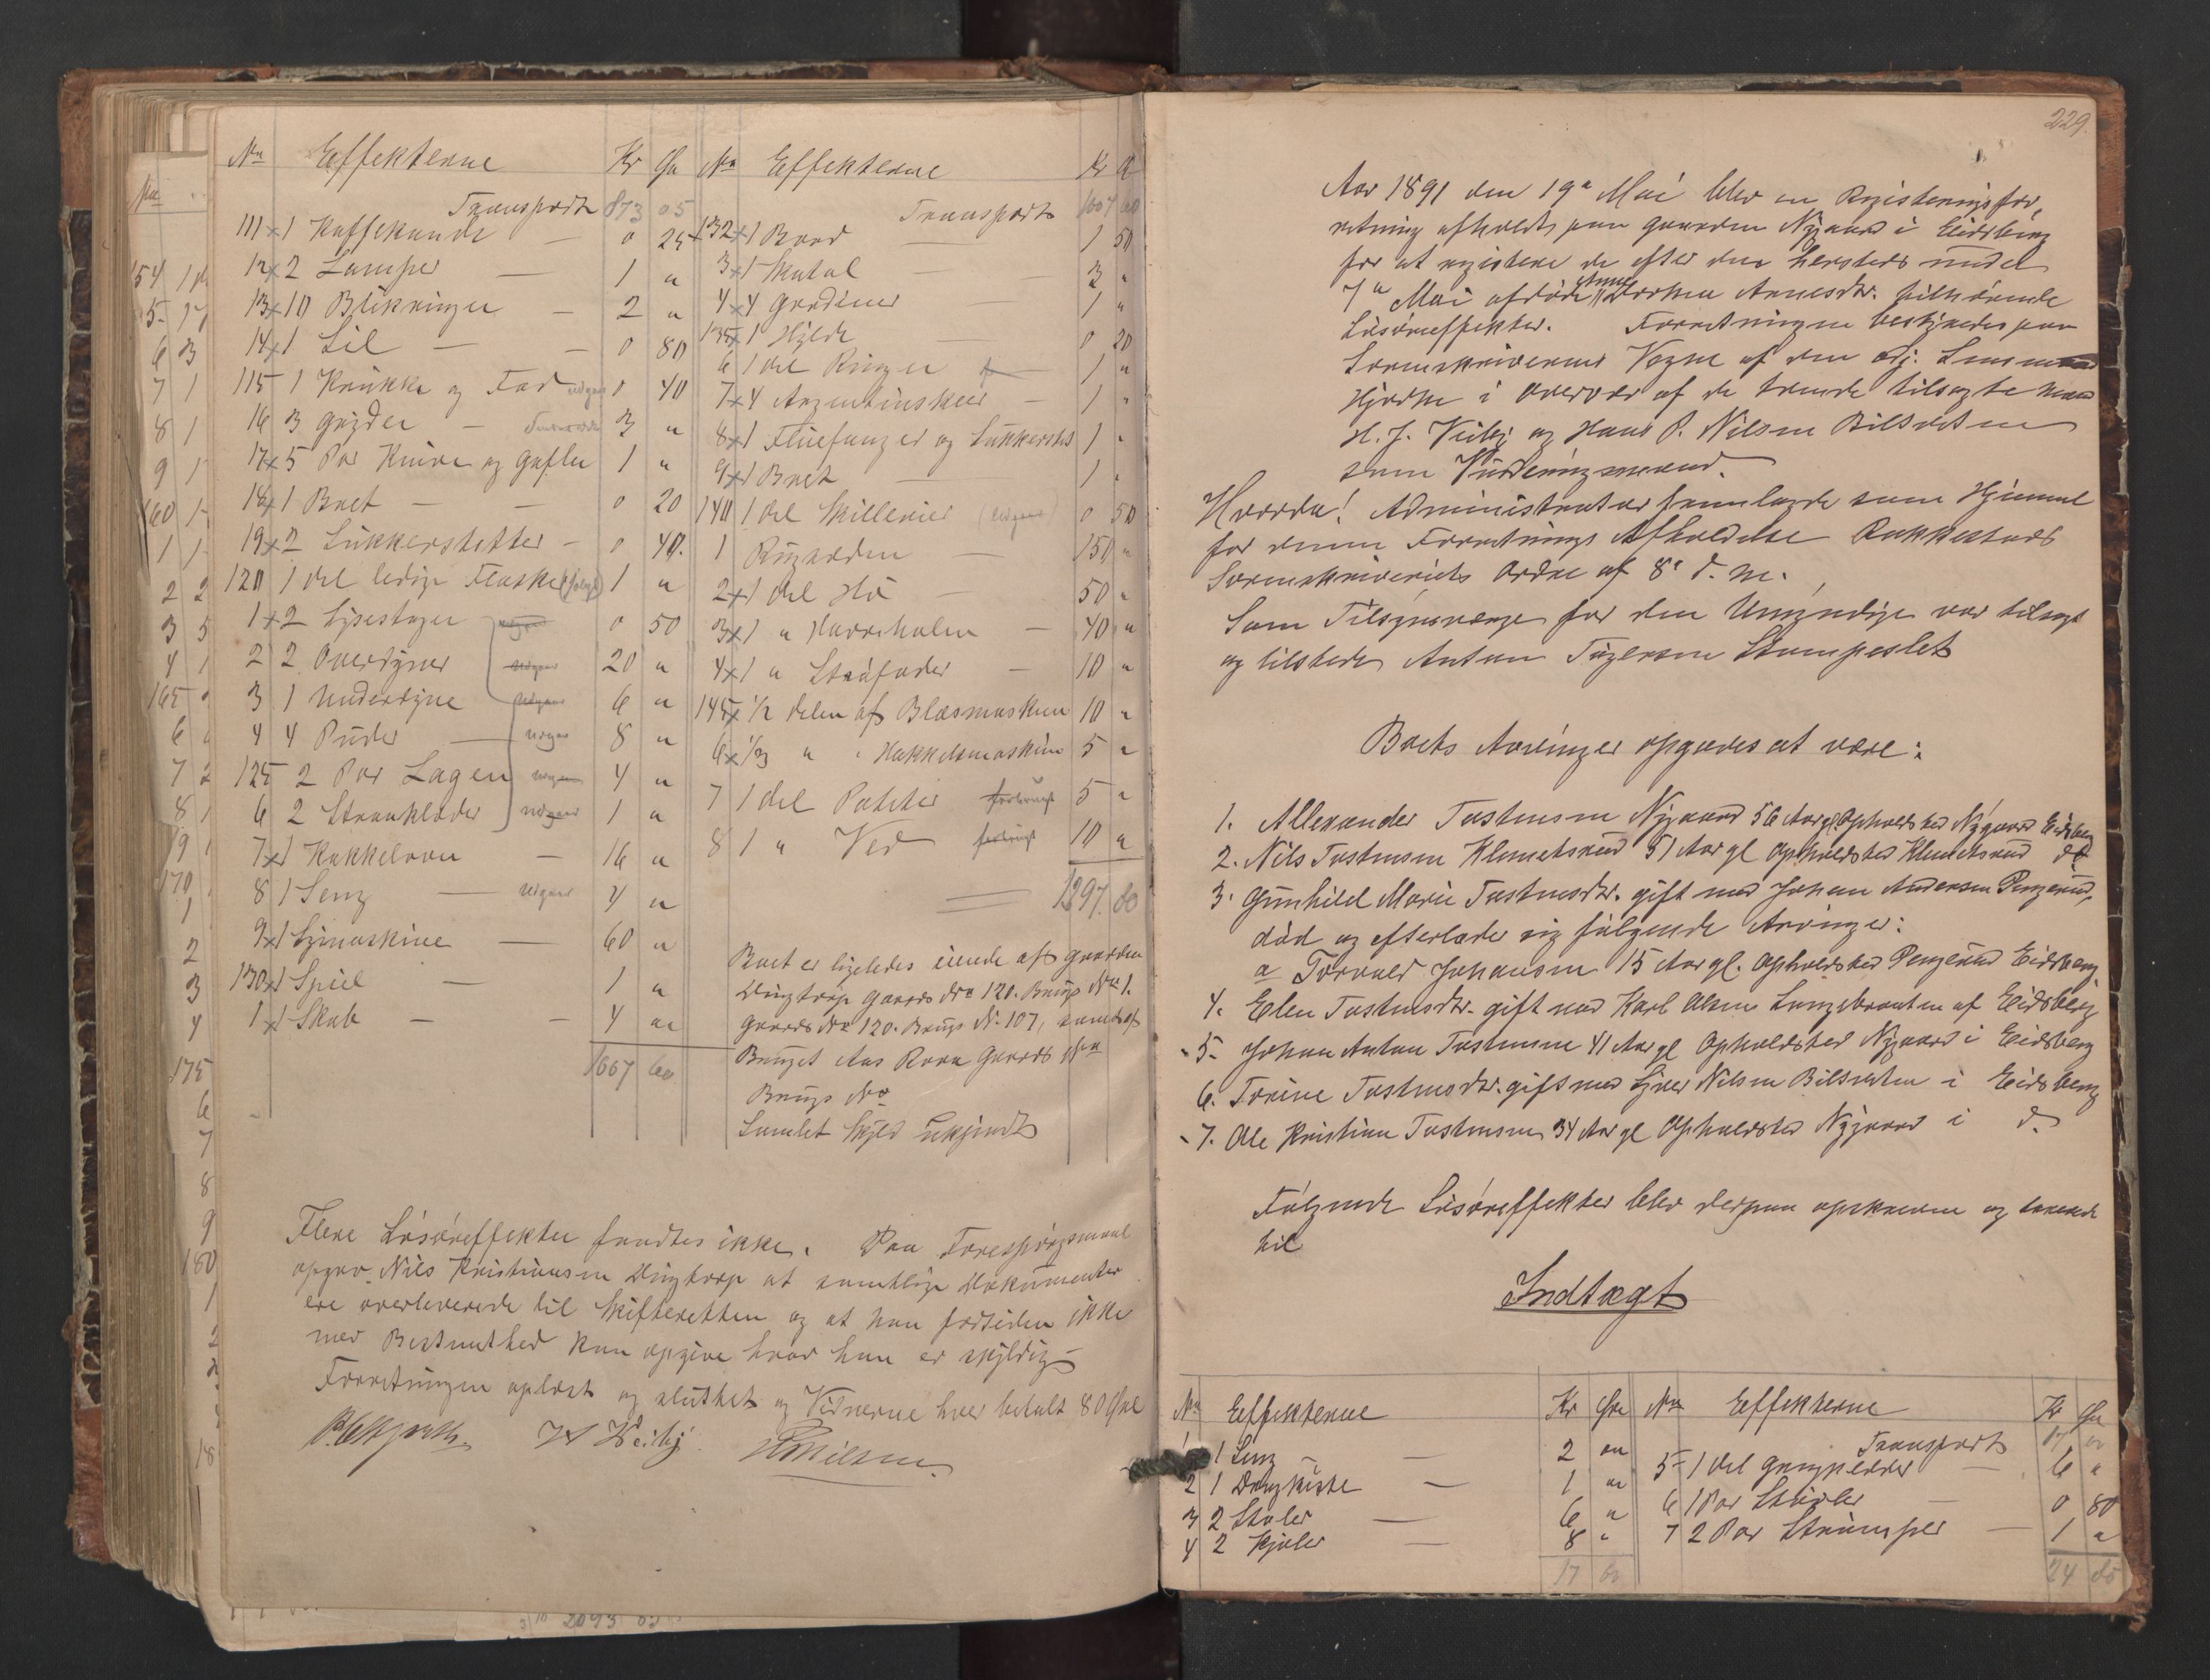 No Effekterne Kr Øre
Transport 873 05
111 x 1 Kaffekande — 0 25
12 x 2 Lamper — 1 "
13 x 10 Blikringer — 2 "
14 x 1 Sil — 0 80
115 1 Krukke og Fad udgaar 0 40
16 3 Gryder — 3 "
17 x 5 Par Knive og Gafler 1 "
18 x 1 Bret — 0 20
19 x 2 Sukkerstetter — 0 40.
120 1 del ledige Flasker (solgt) 1 "
1 x 2 Lysestager 0 50
2 2 Overdyner udgaar 20 "
3 1 Underdyne udgaar 6 "
4 4 Puder — udgaar 8 "
125 2 Par Lagen udgaar 4 "
6 2 Straaklæder udgaar 1 "
7 x 1 Kakkelovn — 16 "
8 1 Seng — udgaar 4 "
9 x 1 Symaskine — 60 "
130 x 1 Speil — 1 "
1 x 1 Skab — — 4 "
1007 60
No Effekterne Kr Ø
Transport 1007 60
132 x 1 Bord — 1 50
3 x 1 Skatol — 3 "
4 x 4 Gardiner — 1 "
135 x 1 Hylde 0 20
6 1 del Ringer — 1 "
7 x 4 Argentinskeer — 1 "
8 x 1 Fluefanger og Sukkerstet 1 "
9 x 1 Bret — 1 "
140 1 del Skillerier (udgaar) 0 50
1 Rugarden — 150 "
2 x 1 del Hö — 50 "
3 x 1 " Havrehalm — 40 "
4 x 1 " Staafoder — 10 "
145 x 1/2 delen af Blæsmaskin 10 "
6 x 1/3 " " Hakkelsmaskin 5 "
7 1 del Poteter forbrugt 5 "
8 1 " Ved forbrugt 10 "
1297. 80
Boet er ligeledes eiende af Gaarden
Dingtorp Gaards No 120. Brugs No 1.
Gaards No 120. Brugs N. 107, samt af
Bruget Aas Rora Gaards No
Brugs No
Samlet Skyld Ubekjendt
Flere Lösöreffekter fandtes ikke. Paa Forespörgsmaal
opgav Nils Kristiansen Dingtorp at samtlige Dokumenter
ere overleverede til Skifteretten og at han forresten ikke
med Bestemthed kan opgive hvad han er skyldig.
Forretningen oplæst og sluttet og Vidnerne hver betalt 80 Øre
H Veiby
229.
Aar 1891 den 19de Mai blev en Registreringsfor,
retning afholdt paa Gaarden Nygaard i Eidsberg
for at registrere de efter den hersteds under
7de Mai afdöde Enke Dorthea Arnesdtr. tilhörende
Lösöreffekter. Forretningen bestyredes paa
Sorenskriverens Vegne af den Adj. Lensmand
Hjorth i Overvær af de tvende tilsagte Mænd
H. J. Veiby og Hans P. Nilsen Bilsreten
som Vurderingsmænd.
Hvorda! Administrator fremlagde som Hjemmel
for denne Forretnings Afholdelse Rakkestads
Sorenskriveries Ordre af 8de d. M.
Som Tilsynsværge for den Umyndige var tilsagt
og tilstede Anton Torgersen Stompeslet
Boets Arvinger opgaves at være:
1. Allexander Tostensen Nygaard 56 Aar gl. Opholdsted Nygaard Eidsberg
2. Nils Tostensen Klemetsrud 51 Aar gl Opholdsted Klemetsrud do
3. Gunhild Marie Tostensdtr. gift med Johan Andersen Pengerud,
död og efterlader sig fölgende Arvinger:
a Torvald Johansen 15 Aar gl. Opholdsted Pengerud Eidsberg
4. Elen Tostensdtr. gift med Karl Olsen Langebraaten af Eidsberg
5. Johan Anton Tostensen 41 Aar gl Opholdsted Nygaard i Eidsberg
6. Torine Tostensdtr. gift med Iver Nilsen Bilsreten i Eidsberg
7. Ole Kristian Tostensen 34 Aar gl Opholdsted Nygaard i do
Fölgende Lösöreffekter blev derpaa opskreven og taxeret
til
Indtægt
No Effekterne Kr Øre
1 1 Seng — 2 "
2 1 Dragkiste — 1 "
3 2 Stoler — 6 "
4 2 Kjoler — 8 "
17 00
No Effekterne Kr Øre
Transport 17 00
5 1 del Gangklæder — 6 "
6 1 Par Stövler — 0 80
7 2 Par Strömper — 1 "
24 80